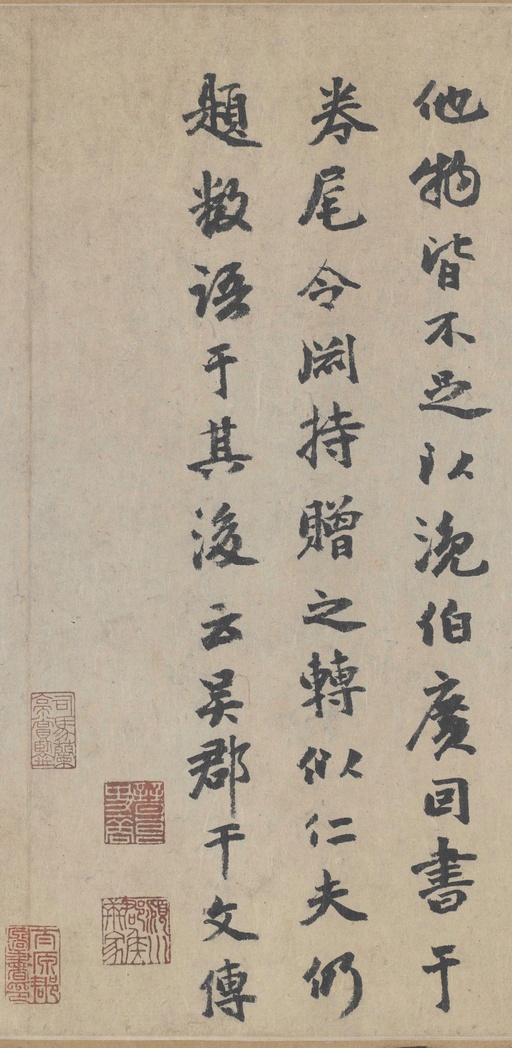 他物皆不足以浼伯廣回書于
卷尾令持贈之轉似仁夫仍
題數語于其後云吴郡干文傳